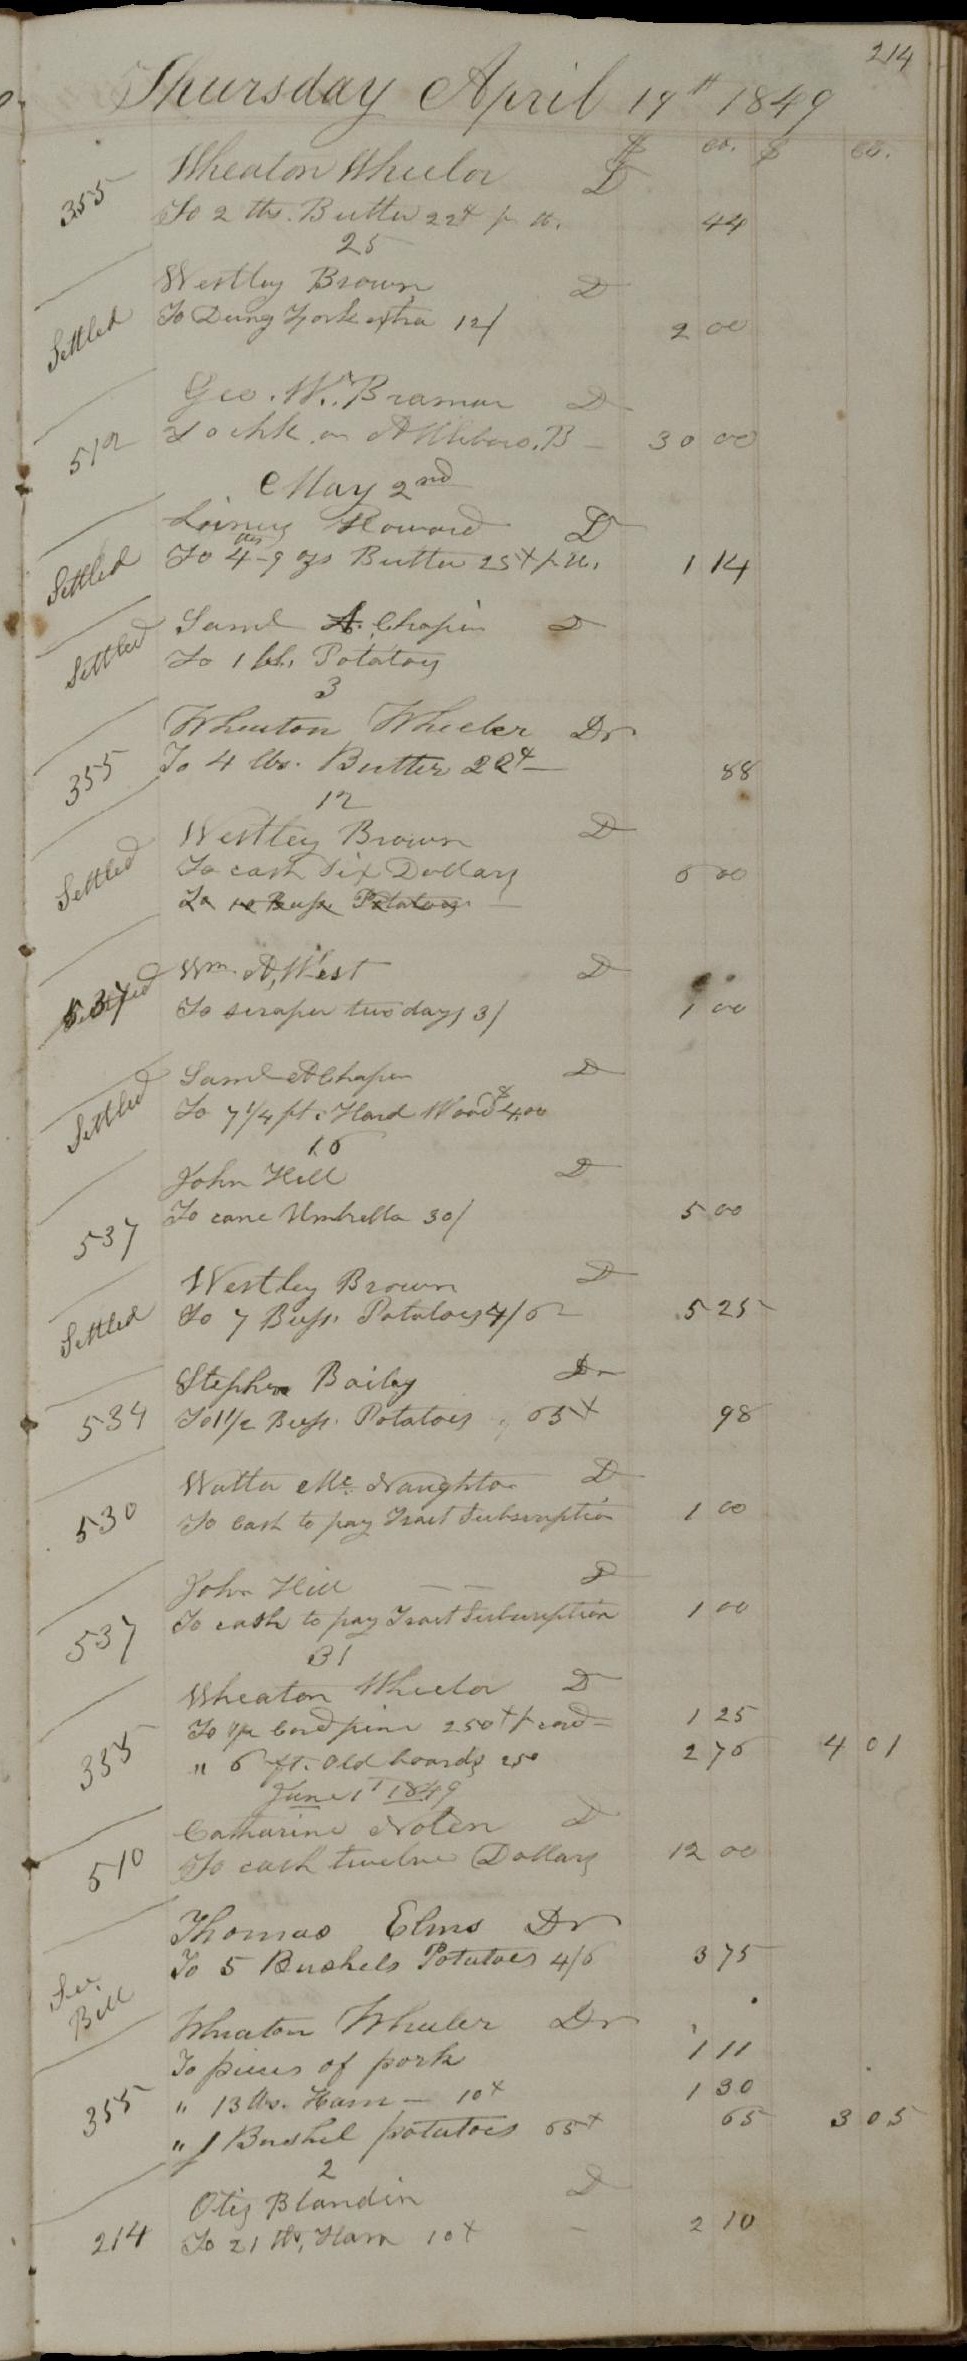 214
Thursday April 19th 1849
$ cts. $ cts.
355 Wheaton Wheelor D
To 2 lbs. Butter 22¢ pr lb. 44
25
Settled Westley Brown D
To Dung Fork extra 12/ 2 00
512 Geo. W. Braman D
To chk on Attleboro. B 30 00
May 2nd
Settled Howard D
To 4 lbs - 9 ozs Butter 25¢ pr lb. 1 14
Settled Saml A. Chapin D
To 1 bh. Potatoes
3
355 Wheaton Wheeler Dr
To 4 lbs. Butter 22¢ 88
12
Settled Westley Brown D
To cash Six Dollars 6 00
To 10 Bush Potatoes
537 Wm. A. West D
To scraper two days 3/ 1 00
Settled Saml A Chapin D
To 7 1/4 ft. Hard Wood $4.00
16
537 John Hill D
To cane Umbrella 30/ 5 00
Settled Westley Brown D
To 7 Bush. Potatoes 4/6 5 25
534 Stephen Bailey Dr
To 1 1/2 Bush. Potatoes 65¢ 98
530 Walter Mc Naughton D
To Cash to pay Tract Subscription 1 00
537 John Hill D
To cash to pay Tract Subscription 1 00
31
355 Wheaton Wheelor D
To 1/2 Cord pine 250¢ pr cord 1 25
" 6 ft. Old boards 2 76 4 01
June 1st 1849
510 Catharine Noten D
To cash twelve Dollars 12 00
Thomas Elms Dr
See Bill To 5 Bushels Potatoes 4/6 3 75
355 Wheaton Wheeler Dr
To pieces of pork 1 11
" 13 lbs. Ham 10¢ 1 30
" 1 Bushel potatoes 65¢ 65 3 05
2
214 Otis Blandin D
To 21 lbs, Ham 10¢ 2 10